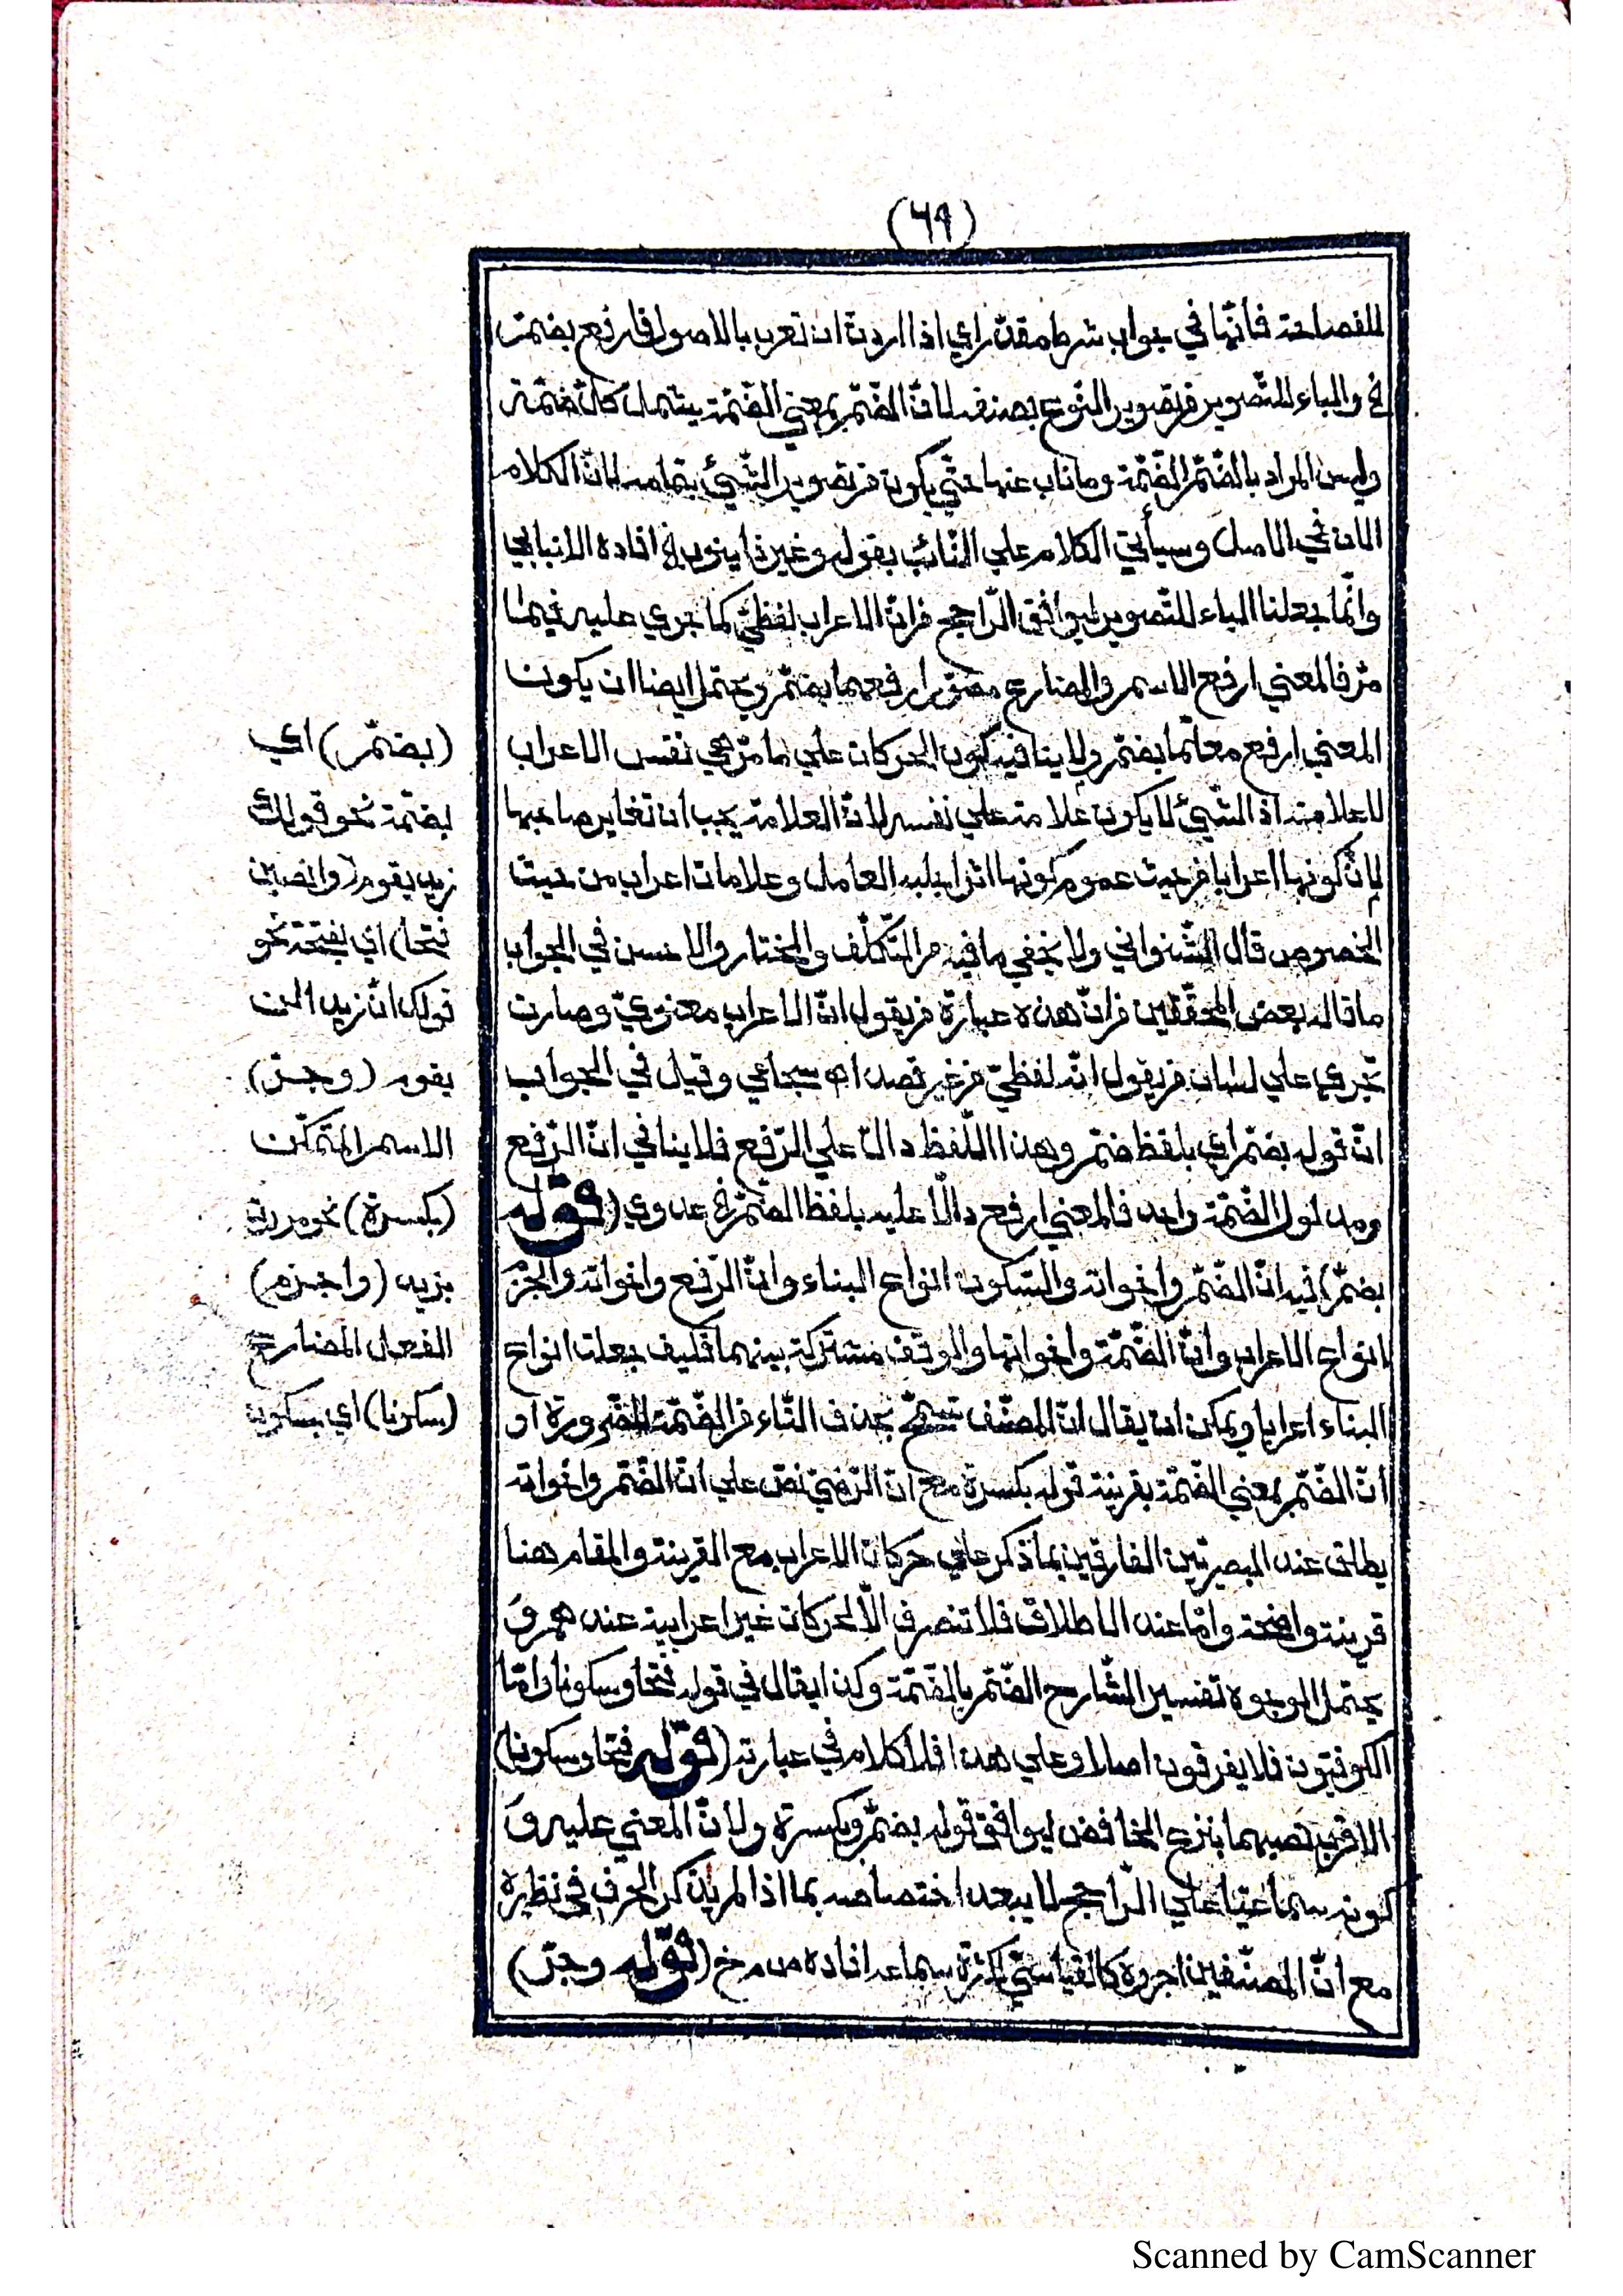 (٦٩)
للفصاحة فأنّها في جواب شرط مقدّر اي اذا اردت ان تعرب بالاصول فارفع بضمّة
خ والباء للتّصوير فرتصوير النّوع بصنفه لانّ الضّمّ بمعني الضّمّة يشمل كلّ ضمّة
وليس المراد بالضّمّ الضّمّة وما ناب عنها حتّي يكون فرتصوير الشّيئ بتمامه لانّ الكلام
الان في الاصل وسيأتي الكلام علي النّائب بقوله وغير ذا ينوب اﻫ افاده الانبابي
وانّما جعلنا الباء للتّصوير ليوافق الرّاجح فرانّ الاعراب لفظيّ كما جري عليه فيما
مرّ فالمعني ارفع الاسم والمضارع مصوّرا رفعهما بضمّ ويحتمل ايضا ان يكون
المعني ارفع معلّما بضمّ ولا ينافيه كون الحركات علي ما مرّ هي نفس الاعراب
لاعلامته اذ الشّيئ لا يكون علامة علي نفسه لانّ العلامة يجب ان تغاير صاحبها
لانّ كونها اعرابا فرحيث عموم كونها اثرا جلبه العامل وعلامات اعراب من حيث
الخصوص قال الشّنواني ولا يخفي ما فيه مرالتّكلّف والمختار والاحسن في الجواب
ما قاله بعض المحقّقين فرانّ هذه عبارة فريقول انّ الاعراب معنويّ وصارت
تجري علي لسان فريقول انّه لفظيّ فرغير قصد اﻫ سجاعي وقيل في الجواب
انّ قوله بضمّ اي بلفظ ضمّ وهذا اللّفظ دالّ علي الرّفع فلا ينافي انّ الرّفع
ومدلول الضّمّة واحد فالمعني ارفع دالّا عليه بلفظ الضّمّ خ عدوي (قوله
بضمّ) فيه انّ الضّمّ واخواته والسّكون انواع البناء وانّ الرّفع واخواته والجزم
انواع الاعراب وانّ الضّمّة واخواتها والوقف مشتركة بينهما فكيف جعلت انواع
البناء اعرابا ويمكن ان يقال انّ المصنّف تسمّح بحذف التّاء فرالضّمّة للضّرورة او
انّ الضّمّ بمعني الضّمّة بقرينة قوله بكسرة مع انّ الرّضيّ نصّ علي انّ الضّمّ واخواته
يطلق عند البصريّين الفارقين بما ذكر علي حركات الاعراب مع القرينة والمقام هنا
قرينة واضحة وامّا عند الاطلاق فلا تنصرف الّا لحركات غير اعرابية عندهم وَ
يحتمل الوجوه تفسير الشّارح الضّمّ بالضّمّة وكذا يقال في قوله فتحا وسكونا وامّا
الكوفيّون فلا يفرقون اصلا وعلي هذا فلا كلام في عبارته (قوله فتحا وسكونا)
الاقرب نصبهما بنزع الخافض ليوافق قوله بضمّ وبكسرة ولانّ المعني عليه وَ
كونه سماعيّا علي الرّاجح لا يبعد اختصاصه بما اذا لم يذكر الحرف في نظيره
مع انّ المصنّفين اجروه كالقياسيّ لكثرة سماعه افاده ص م خ (قوله وجرّ)
(بضمّ) اي
بضمّة نحو قولك
زيد يقوم (وانصبن
فتحا) اي بفتحة نحو
قولك انّ زيدا لن
يقوم (وجرّ)
الاسم المتمكّن
(بكسرة) نحو مررت
بزيد (واجزم)
الفعل المضارع
(سكونا) اي بسكون
Scanned by CamScanner